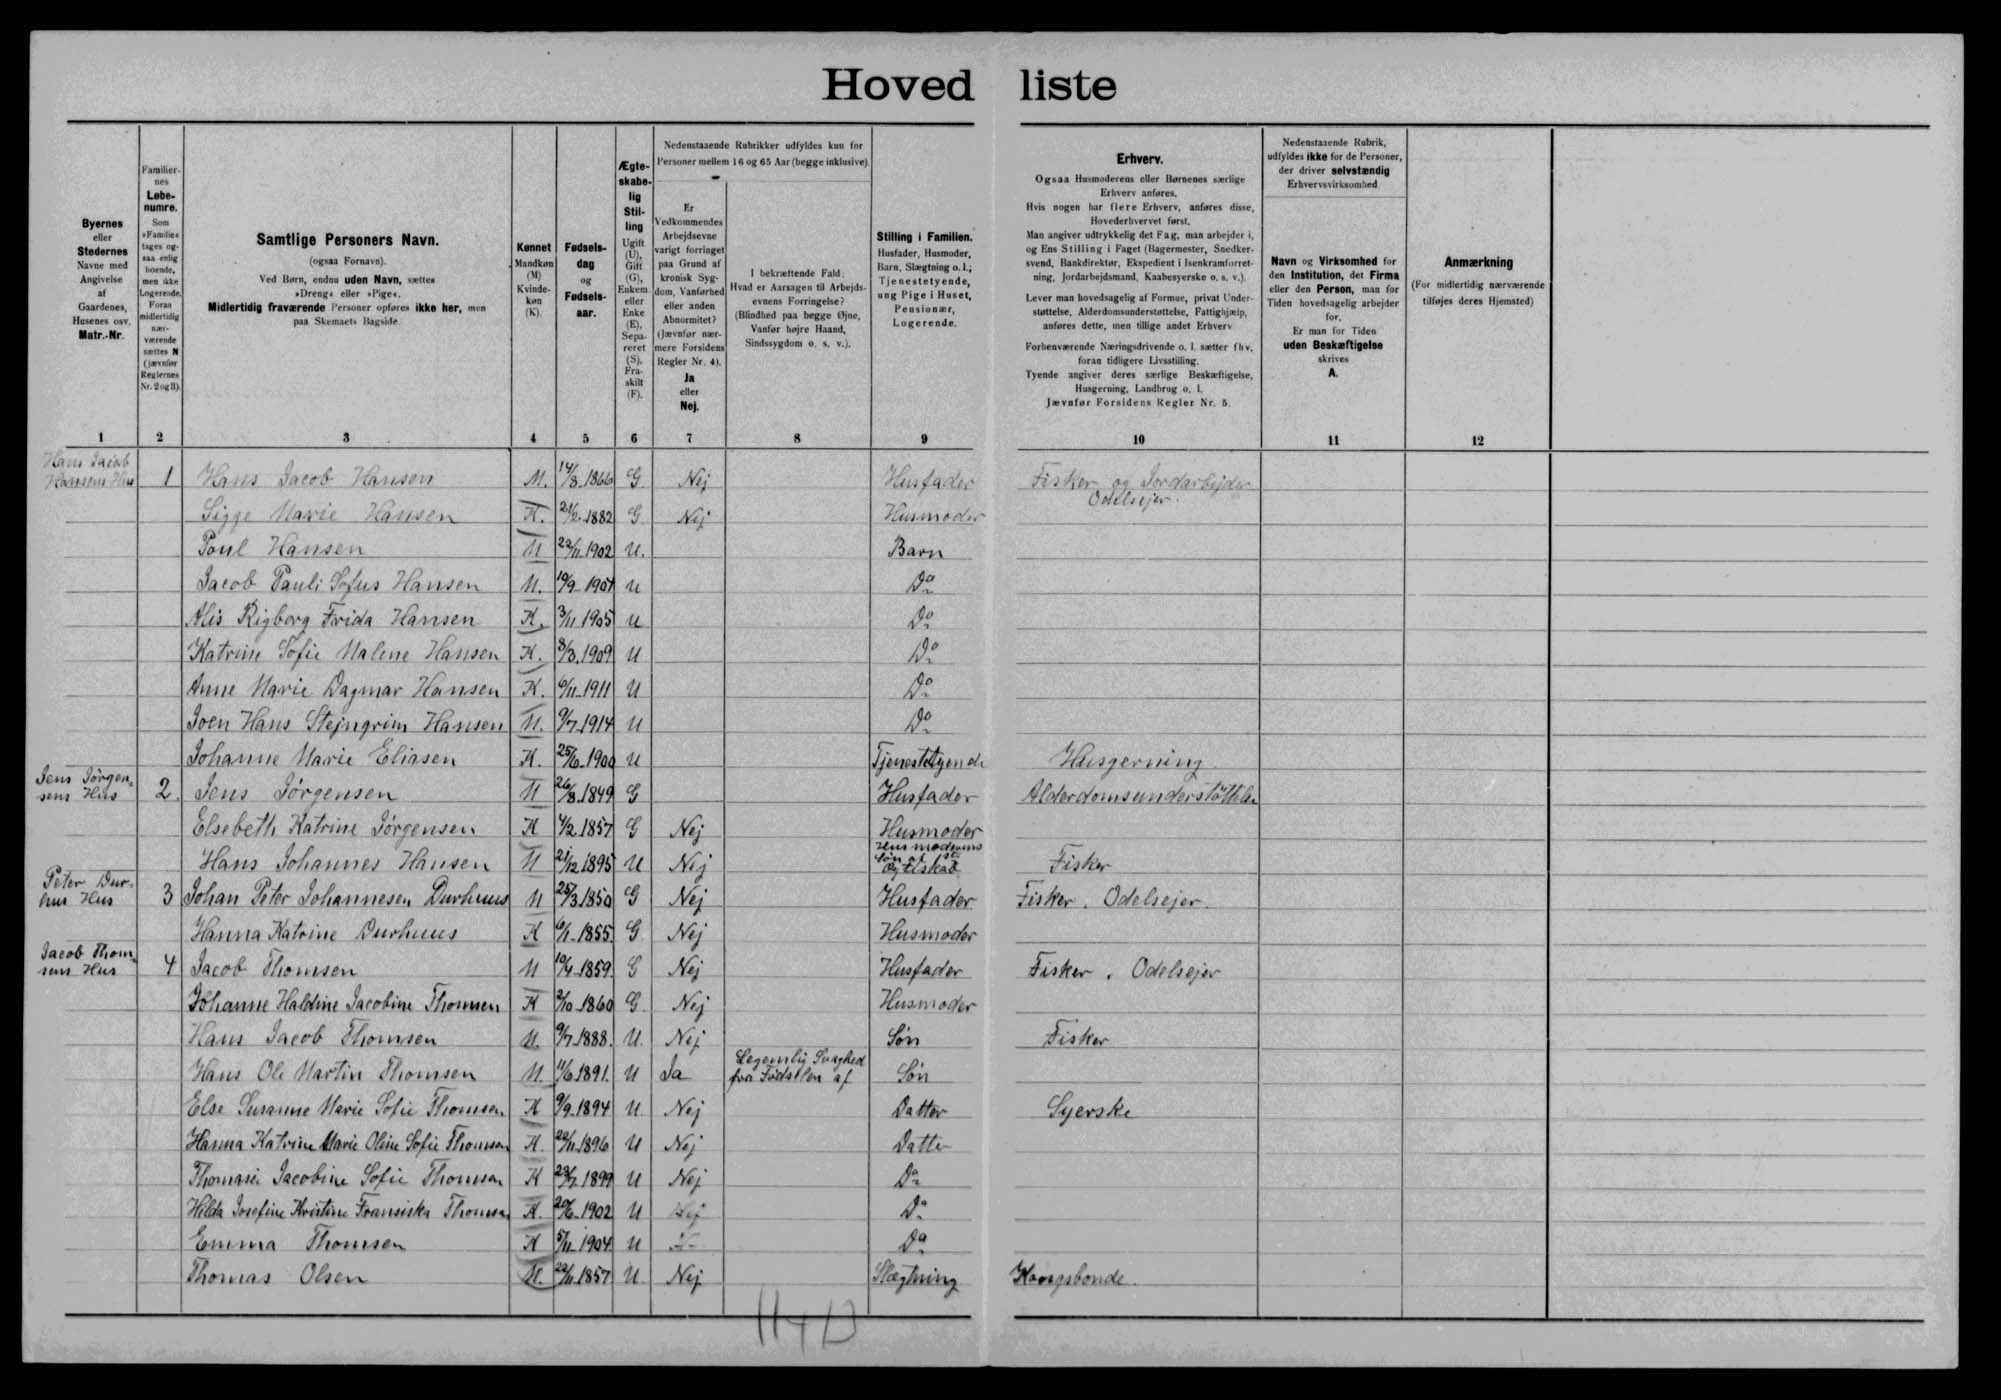 Hoved liste
Byernes
eller
Stedernes
Navne med
Angivelse
af
Gaardenes,
Husenes osv.
Matr.-Nr.
Familier-
nes
Løbe-
numre.
Som
»Familie«
tages og-
saa enlig
boende,
men ikke
Logerende.
Foran
midlertidig
nær-
værende
sættes N
(jævnfør
Reglernes
Nr. 2 og 3).
Samtlige Personers Navn.
(ogsaa Fornavn).
Ved Børn, endnu uden Navn, sættes
»Dreng« eller »Pige«.
Midlertidig fraværende Personer opføres ikke her, men
paa Skemaets Bagside.
Kønnet
Mandkøn
(M)
Kvinde-
køn
(K).
Fødsels-
dag
og
Fødsels-
aar.
Ægte-
skabe-
lig
Stil-
ling
Ugift
(U),
Gift
(G),
Enkem.
eller
Enke
(E),
Sepa-
reret
(S),
Fra-
skilt
(F).
Nedenstaaende Rubrikker udfyldes kun for
Personer mellem 16 og 65 Aar (begge inklusive).
Er
Vedkommendes
Arbejdsevne
varigt forringet
paa Grund af
kronisk Syg-
dom, Vanførhed
eller anden
Abnormitet?
(Jævnfør nær-
mere Forsidens
Regler Nr. 4).
Ja
eller
Nej.
I bekræftende Fald:
Hvad er Aarsagen til Arbejds-
evnens Forringelse?
(Blindhed paa begge Øjne,
Vanfør højre Haand,
Sindssygdom o. s. v.).
Stilling i Familien.
Husfader, Husmoder,
Barn, Slægtning o. l.;
Tjenestetyende,
ung Pige i Huset,
Pensionær,
Logerende.
Erhverv.
Ogsaa Husmoderens eller Børnenes særlige
Erhverv anføres.
Hvis nogen har flere Erhverv, anføres disse,
Hovederhvervet først.
Man angiver udtrykkelig det Fag, man arbejder i,
og Ens Stilling i Faget (Bagermester, Snedker-
svend, Bankdirektør, Ekspedient i Isenkramforret-
ning, Jordarbejdsmand, Kaabesyerske o. s. v.).
Lever man hovedsagelig af Formue, privat Under-
støttelse, Alderdomsunderstøttelse, Fattighjælp,
anføres dette, men tillige andet Erhverv
Forhenværende Næringsdrivende o. l. sætter fhv.
foran tidligere Livsstilling.
Tyende angiver deres særlige Beskæftigelse,
Husgerning, Landbrug o. l.
Jævnfør Forsidens Regler Nr. 5.
Nedenstaaende Rubrik,
udfyldes ikke for de Personer,
der driver selvstændig
Erhvervsvirksomhed
Navn og Virksomhed for
den Institution, det Firma
eller den Person, man for
Tiden hovedsagelig arbejder
for.
Er man for Tiden
uden Beskæftigelse
skrives
A.
Anmærkning
(For midlertidig nærværende
tilføjes deres Hjemsted)
1 2 3 4 5 6 7 8 9 10 11 12
Hans Jacob
Hansens Hus 1 Hans Jacob Hansen M. 14/3.1866 G. Nej Husfader Fisker og Jordarbejder
Odelsejer.
Sigge Marie Hansen K. 21/2.1882 G Nej Husmoder
Poul Hansen M 22/11.1902 U. Barn
Jacob Pauli Sofus Hansen M. 10/9-1907 U Do
Alis Rigborg Frida Hansen K. 3/11 1905 U Do
Katrine Sofie Malene Hansen K. 8/3.1909 U Do
Anne Marie Dagmar Hansen K. 6/11-1911 U Do
Joen Hans Stejngrim Hansen M. 9/7-1914 U Do
Johanne Marie Eliasen K. 25/6.1900 U Tjenestetyende Husgerning
Jens Jörgen-
sens Hus 2. Jens Jörgensen M 26/8.1849 G Husfader Alderdomsunderstöttelse
Elsebeth Katrine Jörgensen K 4/2 1857 G Nej Husmoder
Hans Johannes Hansen M 21/12 1895 U Nej Husmoderens Søn af 1ste Ægteskab Fisker
Peter Dur-
hus Hus 3 Johan Peter Johannesen Durhuus M 25/3.1850 G Nej Husfader Fisker. Odelsejer.
Hanna Katrine Durhuus K 6/1-1855. G. Nej Husmoder
Jacob Thom-
sens Hus 4 Jacob Thomsen M 10/4-1859 G Nej Husfader Fisker. Odelsejer
Johanne Haldine Jacobine Thomsen K 2/10-1860 G. Nej Husmoder
Hans Jacob Thomsen M. 9/7.1888. U. Nej Sön Fisker
Hans Ole Martin Thomsen M. 11/6 1891. U Ja Legemlig Svaghed
fra Födselen af Sön
Else Susanne Marie Sofie Thomsen K 9/9-1894 U Nej Datter Syerske
Hanna Katrine Marie Oline Sofie Thomsen K. 22/11.1896 U Nej Datter
Thomasie Jacobine Sofie Thomsen K 23/7.1899 U Nej Do
Hilda Josefine Kristine Fransiska Thomsen K. 20/6-1902 U Nej Do
Emma Thomsen K 5/11-1904 U Do
Thomas Olsen M. 22/11.1857 U Nej Slægtning Kongsbonde.